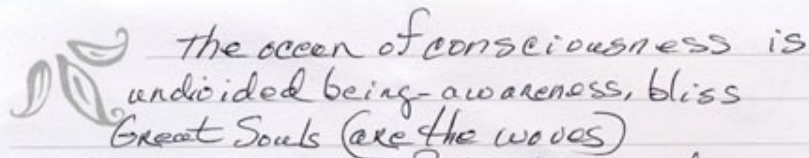 the oceen of consciousness is
undivided being-awareness, bliss
Great Souls (are the waves)